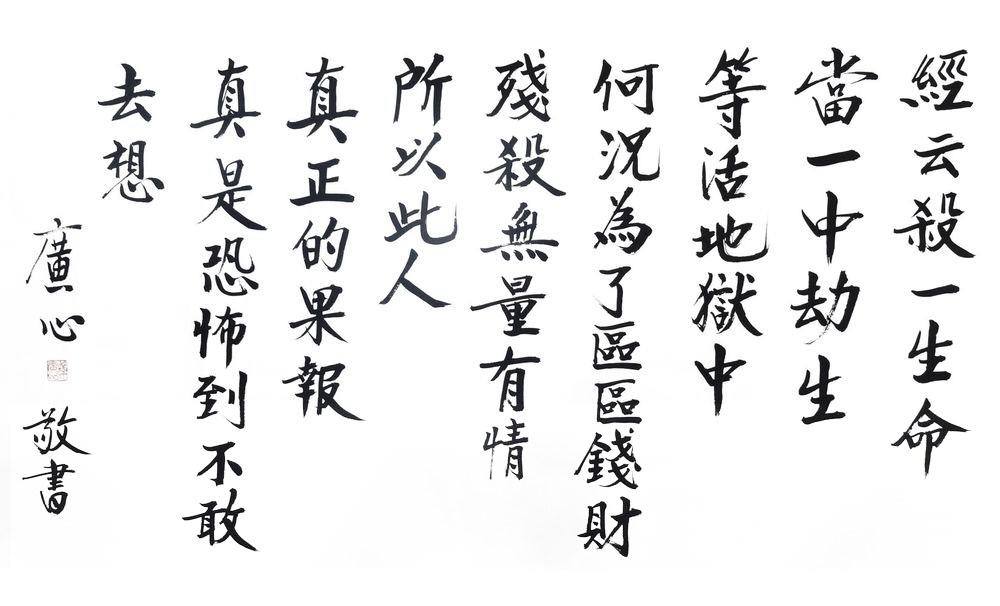 經云殺一生命
當一中劫生
等活地獄中
何況為了區區錢財
殘殺無量有情
所以此人
真正的果報
真是恐怖到不敢
去想
廣心 敬書